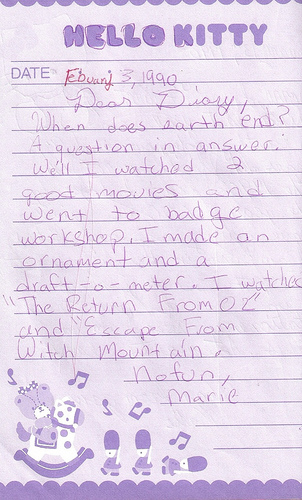 HELLO KITTY
DATE Febuary 3, 1990
Dear Diary,
When does earth end?
A question in answer.
We'll I watched 2
good movies and
went to badge
workshop. I made an
ornament and a
draft-o-meter. I watched
"The Return From OZ"
and "Escape From
Witch Mountain.
Nofun,
Marie